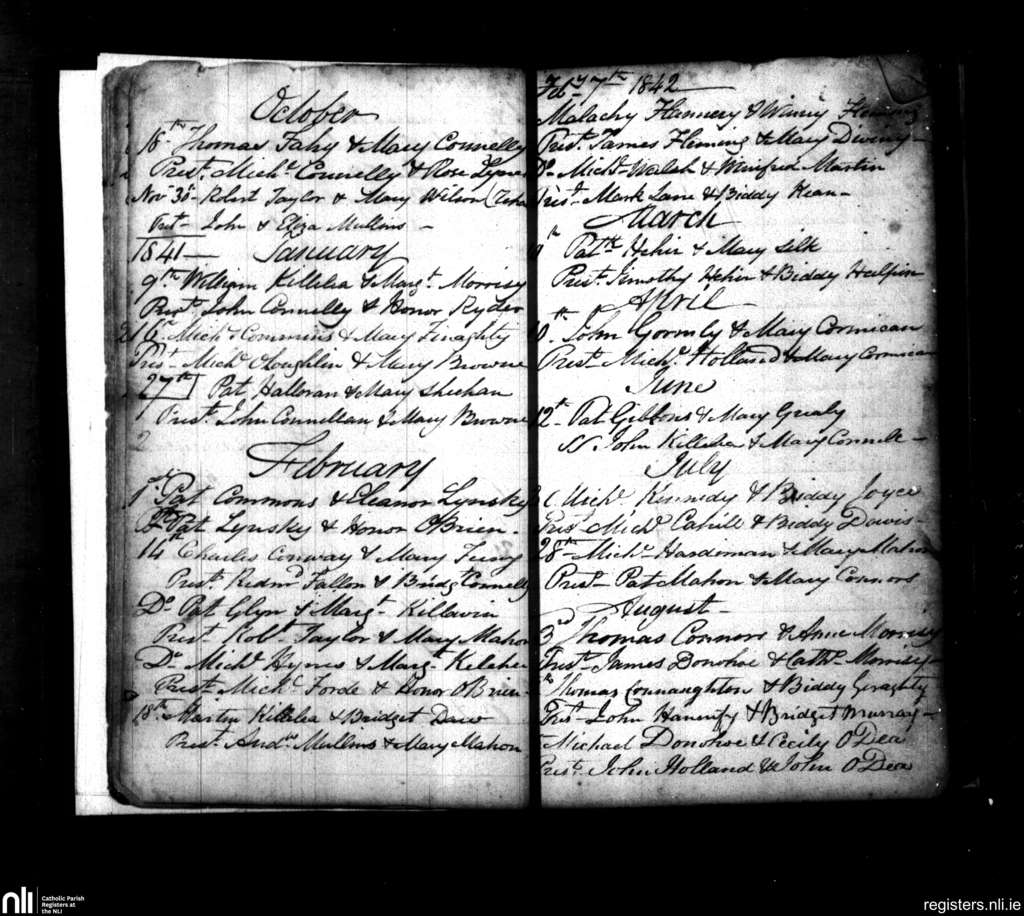 October
18th Thomas Fahy & Mary Connelly
Prest. Michl. Connelly & Rose Lyne
Nov 30 Robert Taylor & Mary Wilson
Prest John & Eliza Mullins
1841 January
9th William Killelea & Margt. Morrisy
Prest. John Connelly & Honor Ryder
Michl. Commins & Mary Finaghty
Prest Michl. OLoughlin & Mary Browne
27th Pat Halloran & Mary Sheehan
Prest. John Connellan & Mary Browne
February
1st Pat Commons & Eleanor Lynskey
Pat Lynsky & Honor OBrien
14th Charles Conway & Mary
Prest. Redmd. Fallon & Bridgt Connelly
Do. Pat Glyn & Margt. Killawin
Prest. Robt. Taylor & Mary Mahon
Do. Michl. Hynes & Margt. Keleher
Prest. Michl. Forde & Honor OBrien
18th Martin Killelea & Bridget Daw
Prest. Andw. Mullins & Mary Mahon
Feby 7th 1842
Malachy Flannery & Winny
Prest. James Fleming & Mary Diviny
Do. Michl. Walsh & Winifred Martin
Prest. Mark Lane & Biddy Kean
March
Patk. Hehir & Mary Silk
Prest. Timothy Hehir & Biddy Halpin
April
John Gormly & Mary Cormican
Prest. Michl. Holland & Mary Cormican
June
12th Pat Gibbons & Mary Grealy
SS. John Killelea & Mary
July
Michl. Kennedy & Biddy Joyce
Prest. Michl. Cahill & Biddy Davis
28th Michl. Hardiman & Mary Mahon
Prest Pat Mahon & Mary Connors
August
3rd Thomas Connors & Anne Morrisy
Prest. James Donohoe & Cathe. Morrisy
Thomas Connaughton & Biddy Geraghty
Prest John & Bridget Murray
Michael Donohoe & Cecily O'Dea
Prest. John Holland & John O'Dea
nli
Catholic Parish
Registers at
the NLI
registers.nli.ie